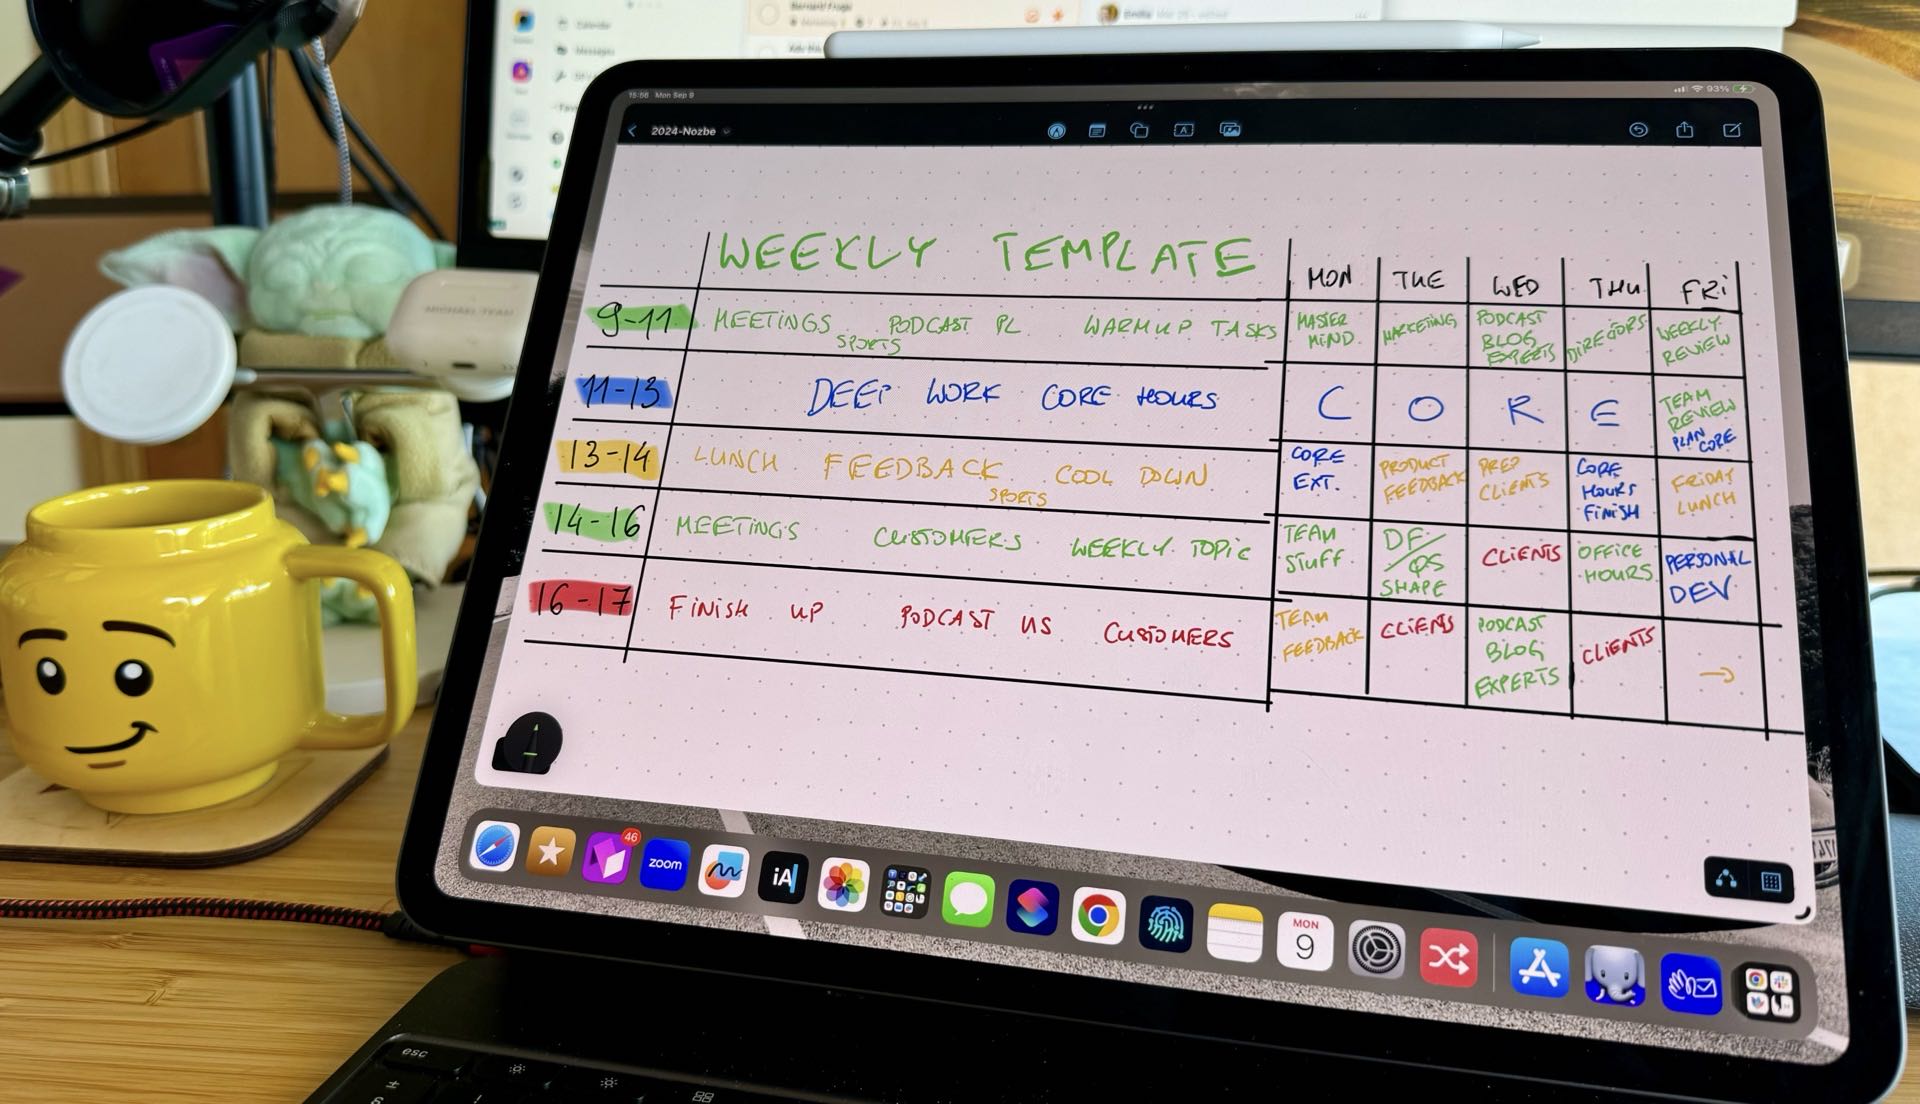 Bernard Frugo
Calendar
Messages
Emilia
MICHAEL TEAM
15:56 Mon Sep 9
93%
2024-Nozbe
WEEKLY TEMPLATE
MON TUE WED THU FRi
9-11 MEETINGS PODCAST PL WARMUP TASKS
SPORTS
MASTER MIND
MARKETING
PODCAST BLOG EXPERTS
DIRECTORS
WEEKLY REVIEW
11-13 DEEP WORK CORE HOURS
C O R E
TEAM REVIEW
PLAN CORE
13-14 LUNCH FEEDBACK COOL DOWN
SPORTS
CORE EXT.
PRODUCT FEEDBACK
PREP CLIENTS
CORE HOURS FiNiSH
FRiDAY LUNCH
14-16 MEETINGS CUSTOMERS WEEKLY TOPiC
TEAM STUFF
DF/QS SHAPE
CLiENTS
OFFiCE HOURS
PERSONAL DEV
16-17 FiNiSH UP PODCAST US CUSTOMERS
TEAM FEEDBACK
CLiENTS
PODCAST BLOG EXPERTS
CLiENTS
→
46
zoom
iA
MON
9
esc